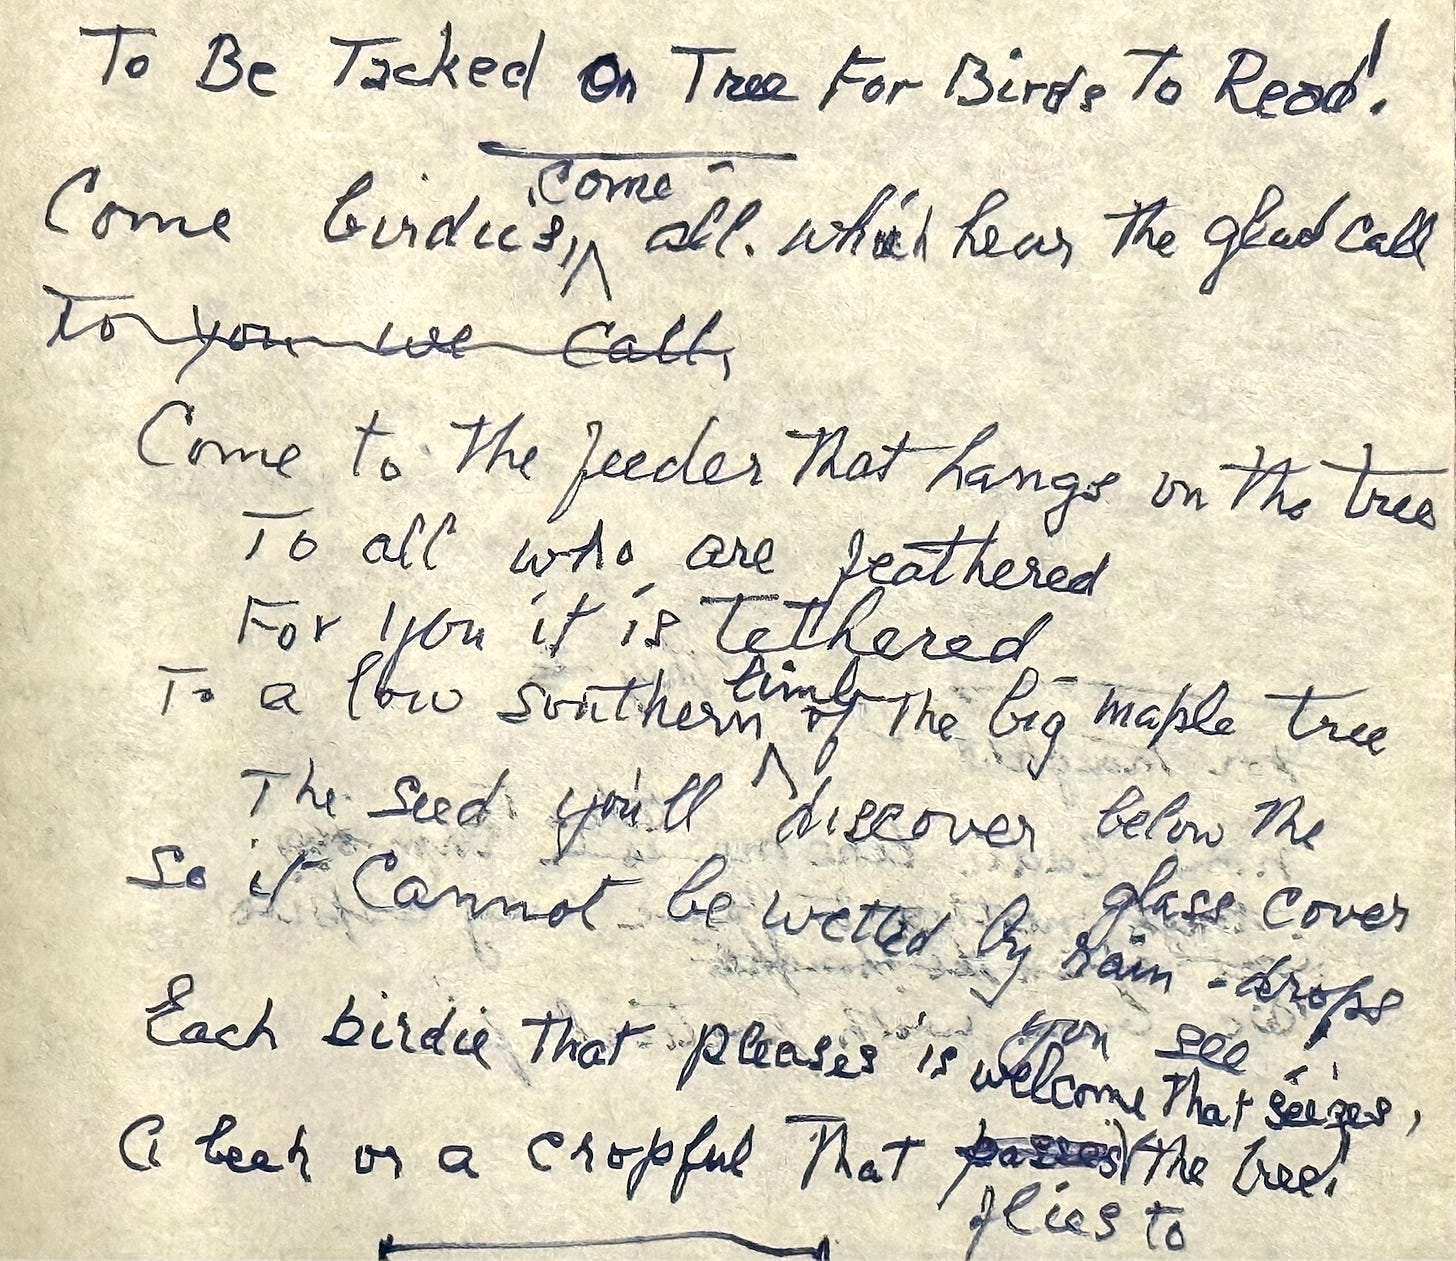 To Be Tacked On Tree For Birds To Read!
Come birdies, come all. which hear the glad call
To you we call,
Come to the feeder that hangs on the tree
To all who are feathered
For you it is tethered
To a low southern limb of the big maple tree
The seed you'll discover below the
glass cover
So it cannot be wetted by rain-drops
you see
Each birdie that pleases is welcome that seizes,
A beak or a cropful that passes flies to the tree!